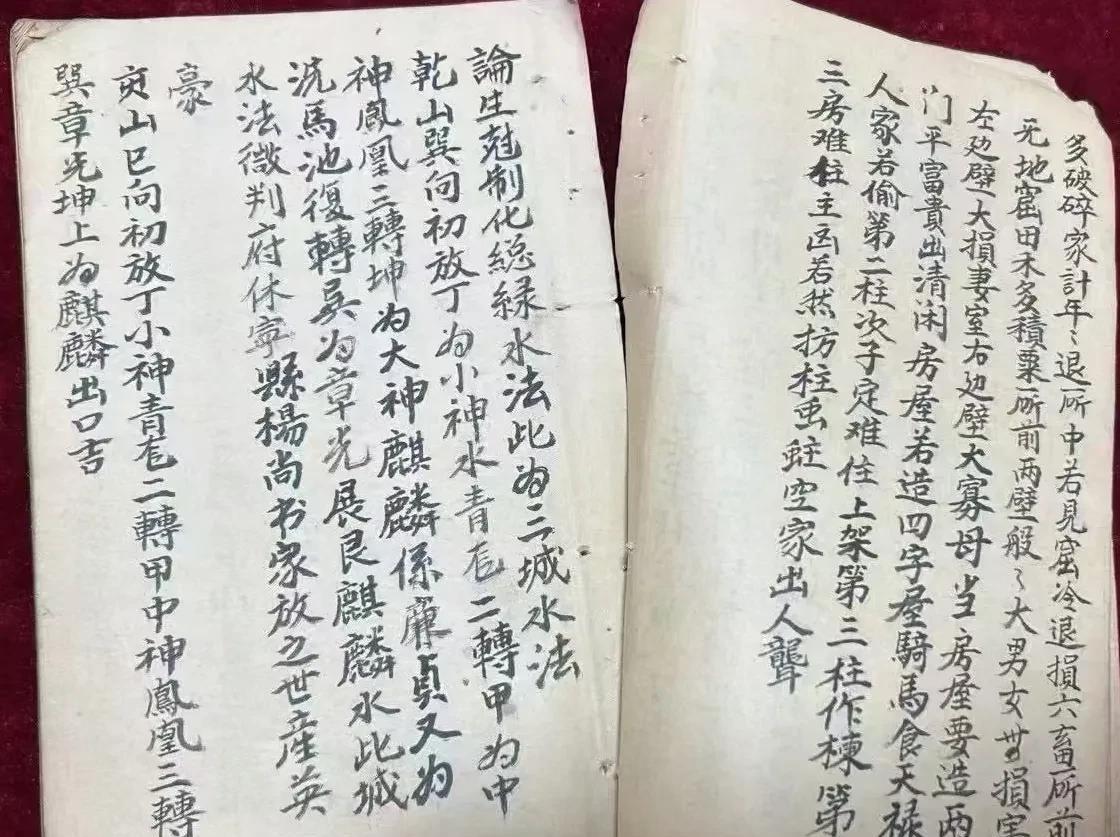 多破碎家計年〻退所中若見窟冷退損六畜所前
无地窟田禾多積粟所前两壁般〻大男女無損害
左边壁大損妻室右边壁大寡母当房屋要造两
门平富貴出清闲房屋若造四字屋騎馬食天禄
人家若偷第二柱次子定难住上架第三柱作棟第
三房难住主凶若然抝柱虫蛀空家出人聾
論生尅制化総緑水法此为二城水法
乾山巽向初放丁为小神水青苞二轉甲为中
神鳳凰三轉坤为大神麒麟係廉貞又为
洗馬池復轉吴为章光艮麒麟水此城
水法徵判府休寧縣楊尚书家放之世産英
豪
亥山巳向初放丁小神青苞二轉甲中神鳳凰三轉
巽章光坤上为麒麟出口吉